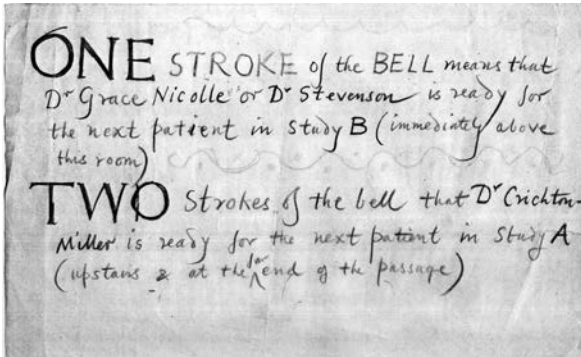 ONE STROKE of the BELL means that
Dr Grace Nicolle or Dr Stevenson is ready for
the next patient in Study B (immediately above
this room)
TWO Strokes of the bell that Dr Crichton-
Miller is ready for the next patient in Study A
(upstairs & at the far end of the passage)